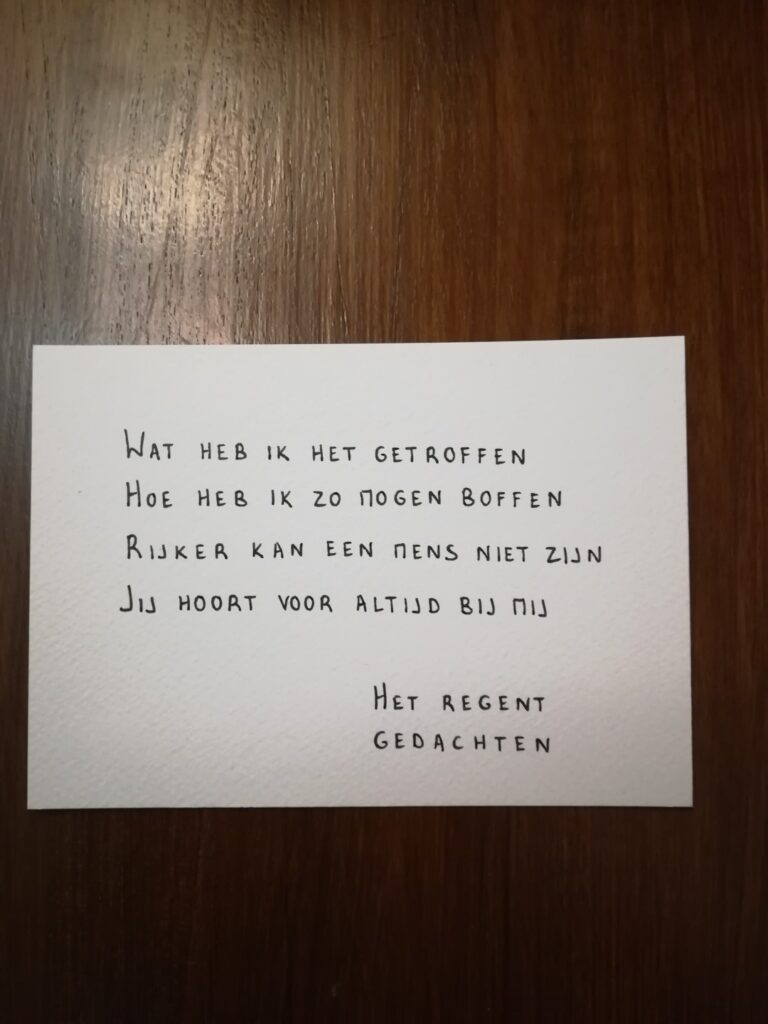 Wat heb ik het getroffen
Hoe heb ik zo mogen boffen
Rijker kan een mens niet zijn
Jij hoort voor altijd bij mij
Het regent
gedachten